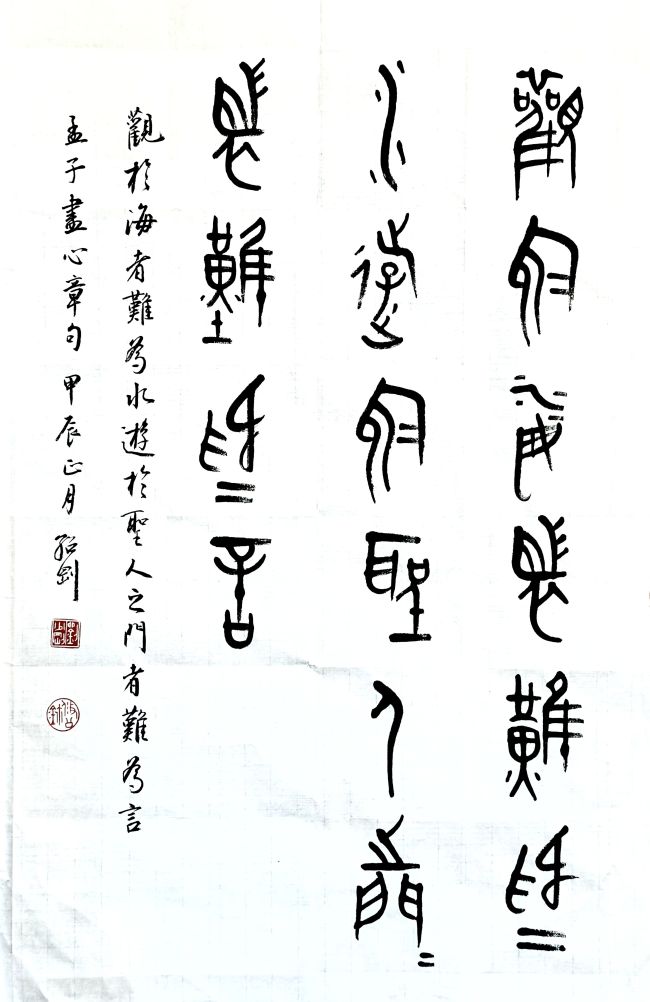 觀於海者難為
水遊於聖人之門
者難為言
觀於海者難為水遊於聖人之門者難為言
孟子盡心章句 甲辰正月